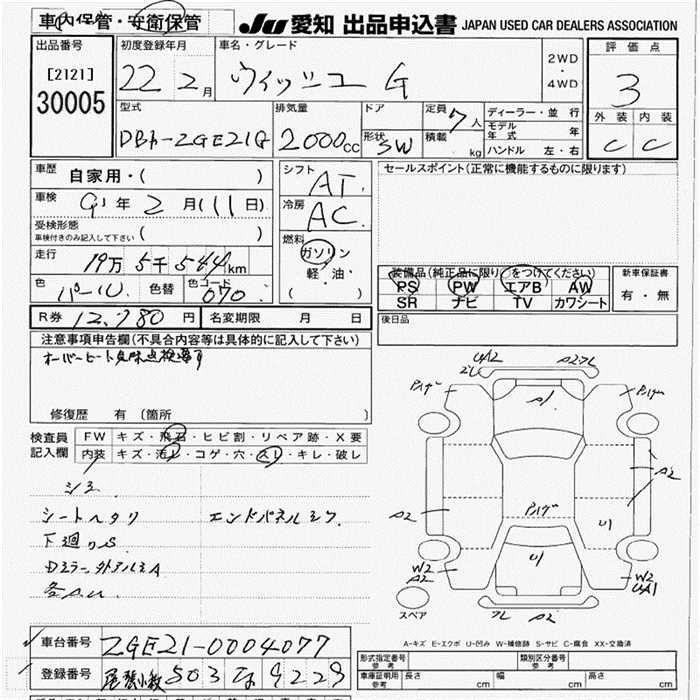 車内保管・安衛保管
JU 愛知 出品申込書 JAPAN USED CAR DEALERS ASSOCIATION
出品番号
[2121]
30005
初度登録年月
22 2月
車名・グレード
ウィッシュ G
2WD
・
4WD
評価点
3
外装 内装
C C
型式
DBA-ZGE21G
排気量
2000cc
ドア
形状 SW
定員 7人
積載 kg
ディーラー・並行
モデル年式 年
ハンドル 左・右
車歴
自家用・( )
車検
年 2月(11日)
受検形態
車検付きのみ記入して下さい ( )
走行
19万5千544km
色 パール 色替 色コード 070
シフト
AT
冷房
AC
燃料
ガソリン
軽・油・
( )
セールスポイント(正常に機能するものに限ります)
装備品(純正品に限り○をつけてください)
PS PW エアB AW
SR ナビ TV カワシート
新車保証書
有・無
R券 12,780円 名変期限 月 日
後日品
注意事項申告欄(不具合内容等は具体的に記入して下さい)
オーバーヒート気味点検要す
修復歴 有 (箇所 )
検査員
記入欄
FW キズ・飛石・ヒビ割・リペア跡・X要
内装 キズ・汚レ・コゲ・穴・スレ・キレ・破レ
シミ
シートヘタリ エンドパネルシワ
下廻りS
Dミラー、外アルミA
各A.U
UA2
A2フレ
A1
A2
A2
A2
U1
U1
W2
A2
W2
UA1
A2
スペア
A-キズ E-エクボ U-凹み W-補修跡 S-サビ C-腐食 XX-交換済
車台番号 ZGE21-0004077
登録番号 尾張小牧 503 9229
形式指定番号
参考
類別区分番号
参考
車庫証明用
参考
長さ cm 幅 cm 高さ cm